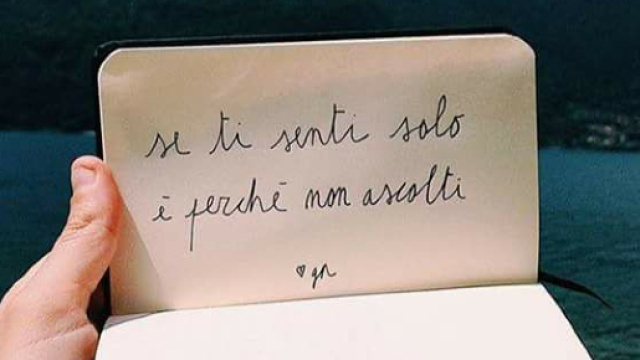 se ti senti solo
è perché non ascolti
♥gr